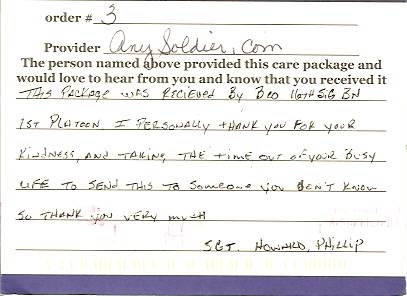 order # 3
Provider AnySoldier.com
The person named above provided this care package and
would love to hear from you and know that you received it
THIS PACKAGE WAS RECIEVED BY BCO 116TH SIG BN
1ST PLATOON I PERSONALLY THANK YOU FOR YOUR
KINDNESS, AND TAKING THE TIME OUT OF YOUR BUSY
LIFE TO SEND THIS TO SOMEONE YOU DON'T KNOW
SO THANK YOU VERY MUCH
SGT. HOWARD, PHILLIP